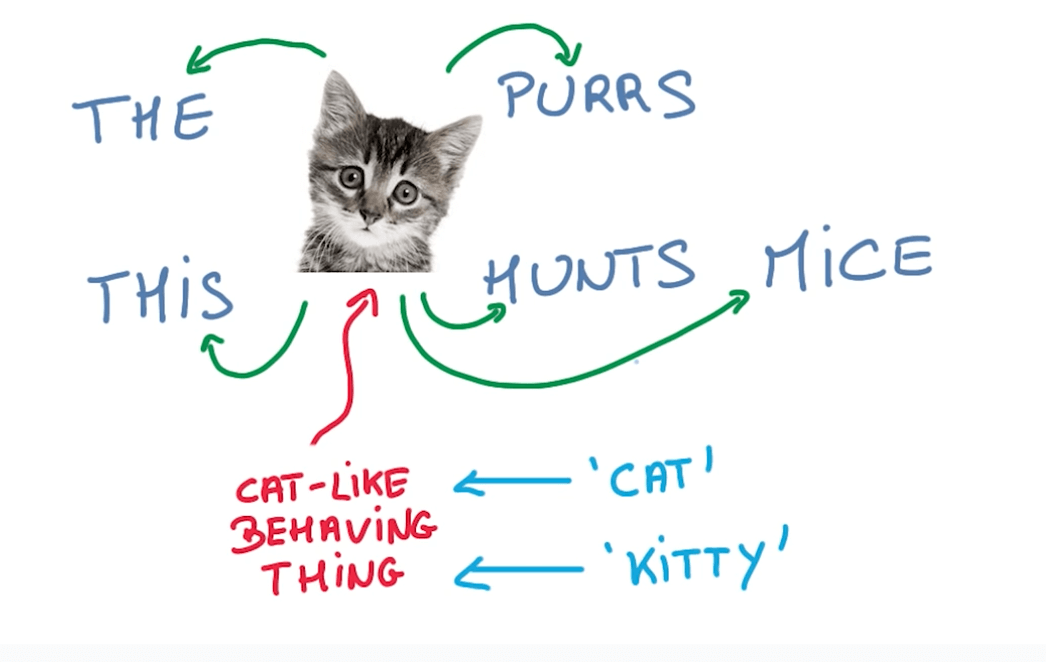 THE PURRS
THIS HUNTS MICE
CAT-LIKE 'CAT'
BEHAVING
THING 'KITTY'